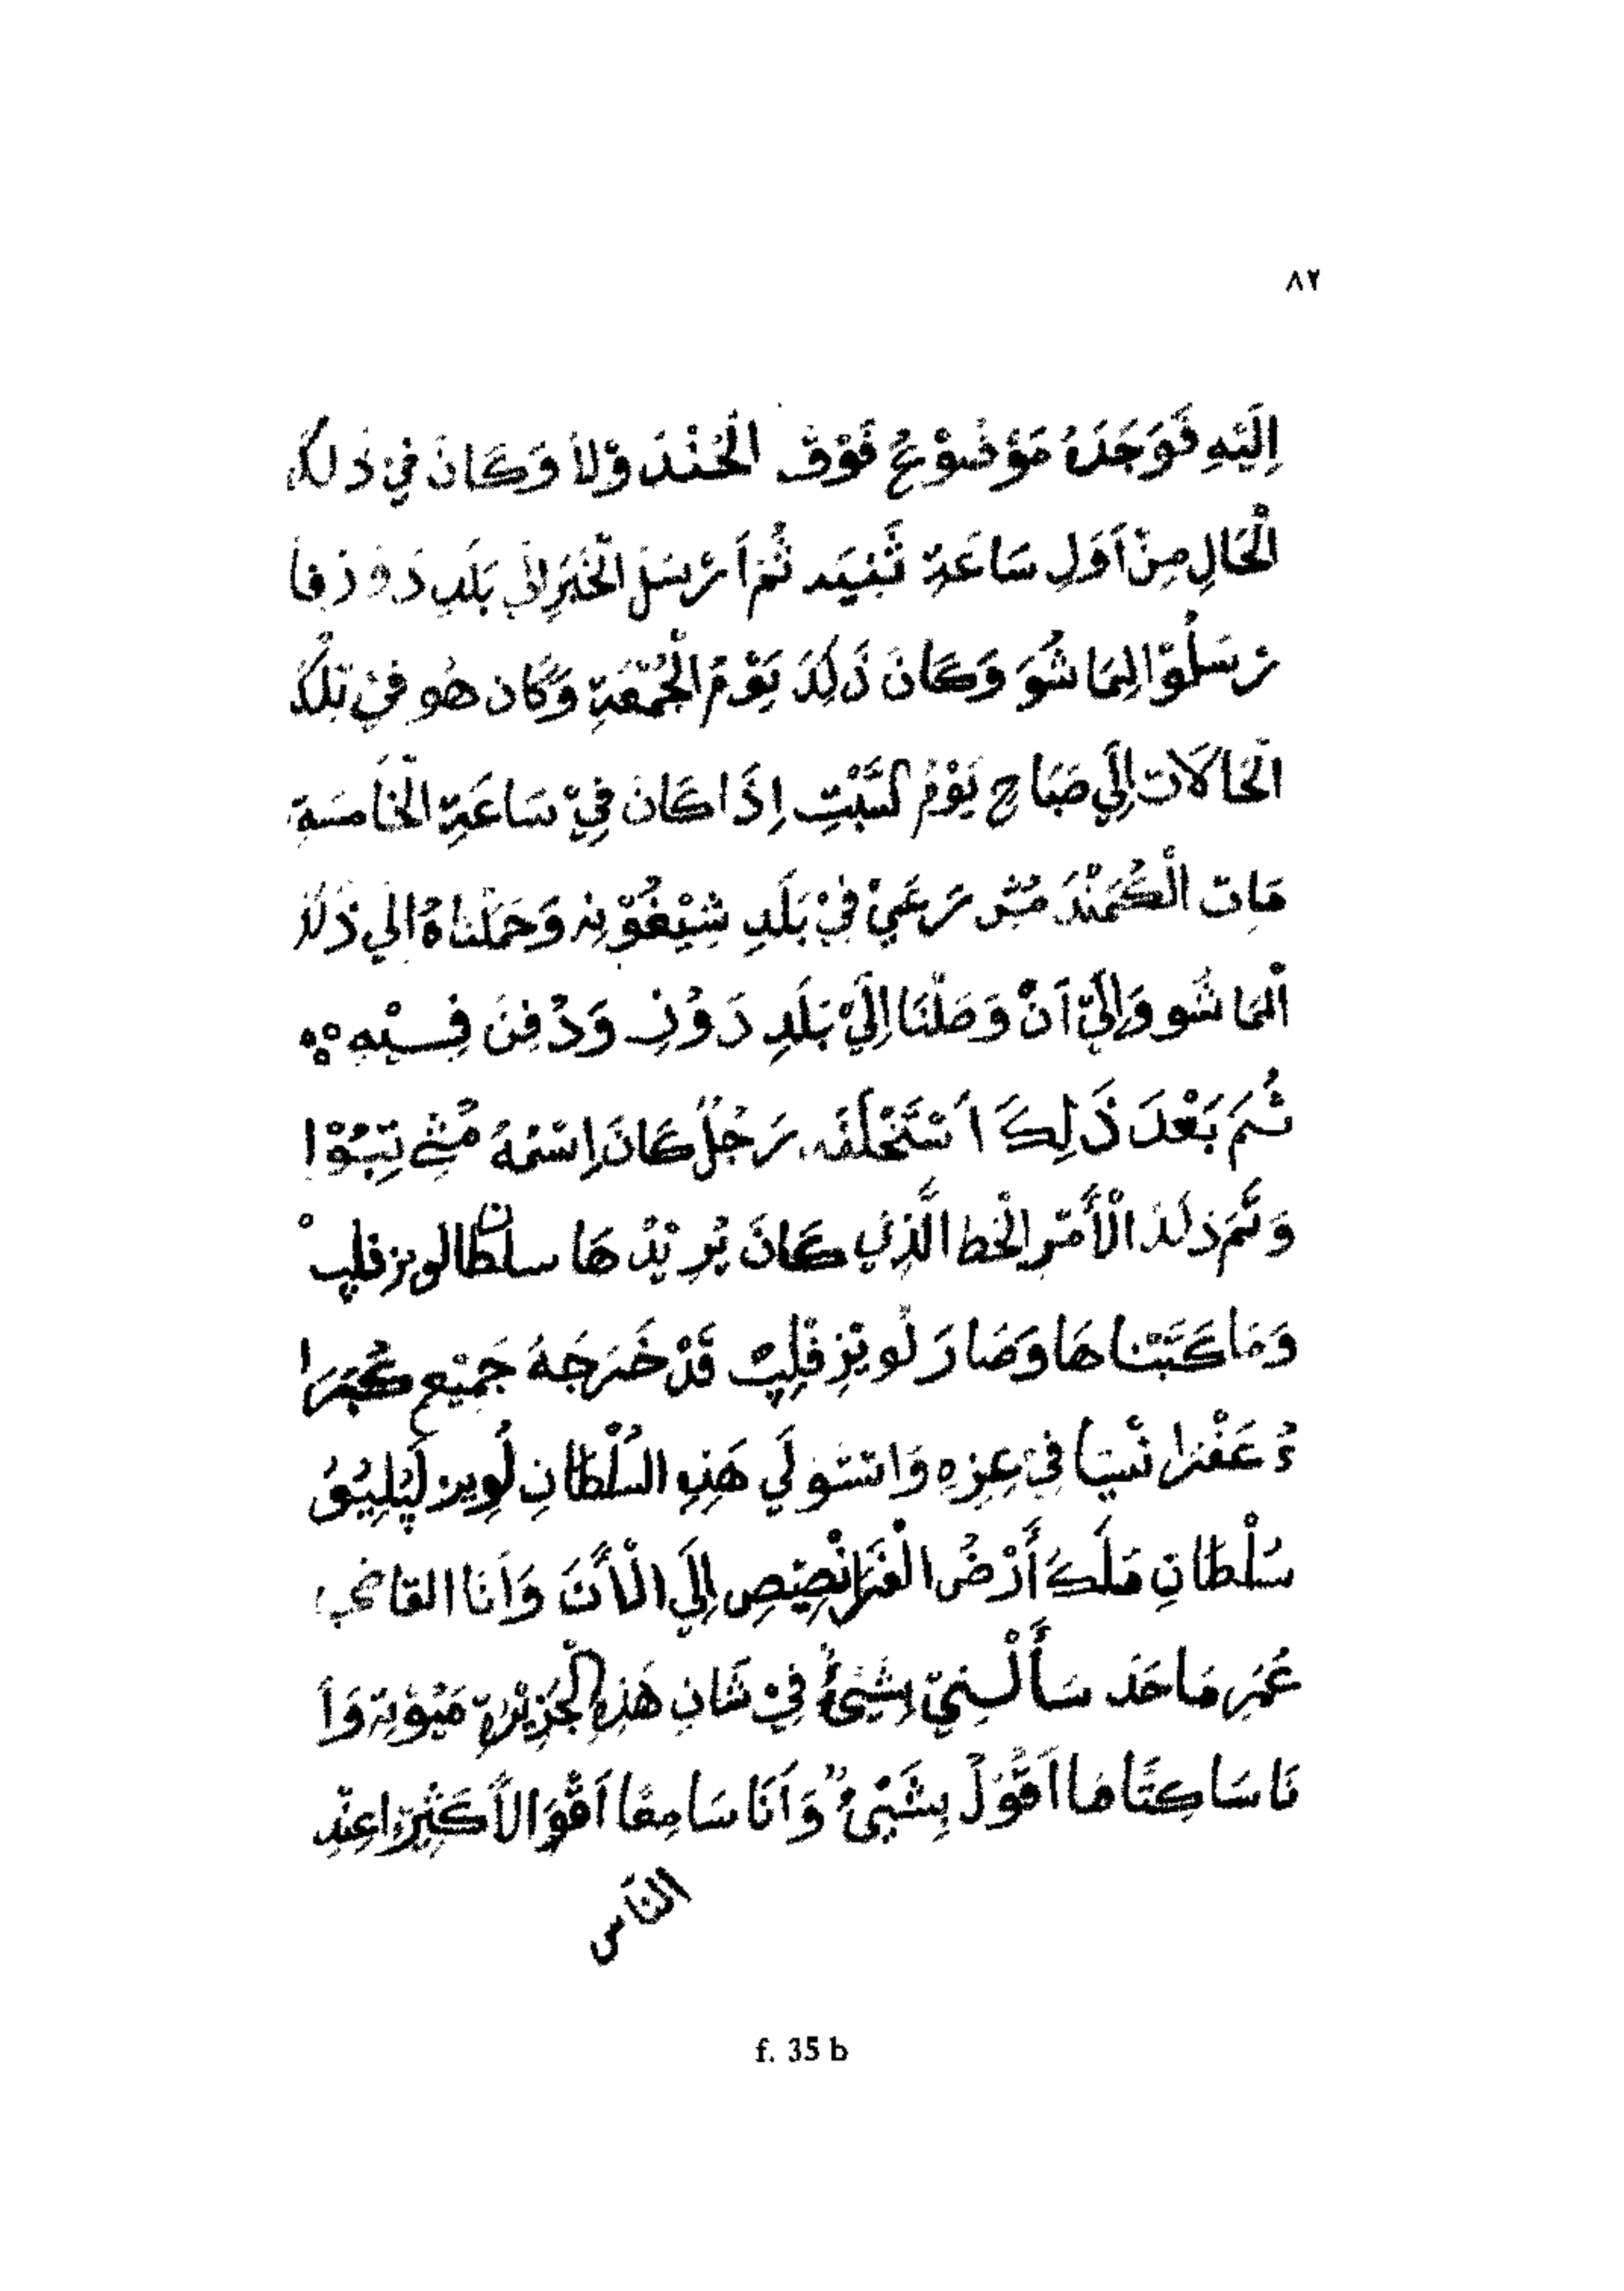 ٨٢
اِلَيْهِ فَوَجَدَهُ مَوْضُوْعٌ فَوْقَ الْحُنْدَوْلَا وَكَانَ فِيْ ذَلِكَ
الْحَالِ مِنْ اَوَلِ سَاعَةِ ثَنِيَه ثُمَ اَرْسَلَ الْخَبَرِ اِلَيْ بَلَدِ دَوُزِ فَا
رْسَلُوْا لِمَاشُوَ وَكَانَ ذَلِكَ يَوْمُ الْجُمْعَةِ وَكَانَ هُو فِيْ تِلْكَ
الْحَالَاتِ اِلَي صَبَاحِ يَوْمُ لسَّبْتِ اِذَا كَانَ فِيْ سَاعَةِ الْخَامَسَةِ
مَاتَ الْكُمَنْدَ مُسْ رَعَيْ فِيْ بَلَدِ شِيْغُوْنِه وَحَمَلْنَاهُ اِلَي ذَلكَ
الْمَاشَو وَاِلَيْ اَنْ وَصَلْنَا اِلَيْ بَلَدِ دَوُزِ وَدُفِنَ فِيْهِ
ثُمَ بَعْدَ ذَلِكَ اَسْتَخْلَفَه رَجُلٌ كَانَ اِسْمُهُ مُسْ تِبُوْا
وَتَمَ ذَلكَ الْأَمْرِ الْخَط الَّذِي كَانَ يُرِيْدُهَا سلطان لويز فلِبْ
وَمَا كَتَبْنَاهَا وَصَارَ لُويْزِ فْلِبْ قَدْ خَرَجَهُ جَمِيْع كُبَرَا
ءُ عَفْرَانْسِيَا فِيْ عِزِهِ وَاسْتَوْلَي هَذِهِ السُلْطَانِ لُوِيز
سُلْطَانِ مَلَكَ أَرْضُ الْفَرَانْصِيْصِ اِلَيَ الْأَنَ وَاَنَا القَاضِي
عُمَرِ مَا حَدَ سَأَلْنِيْ بِشَيْئٌ فِيْ شَانِ هَذِهِ الْجَزِيْرَةِ مَيُوْتَة وَاَ
نَا سَاكِتًا مَا اَقُوْلُ بِشَيْئٌ وَاَنَا سَامِعًا اَقْوَالًا كَثِيْرَا عِنْدِ
النَّاسِ
f. 35 b